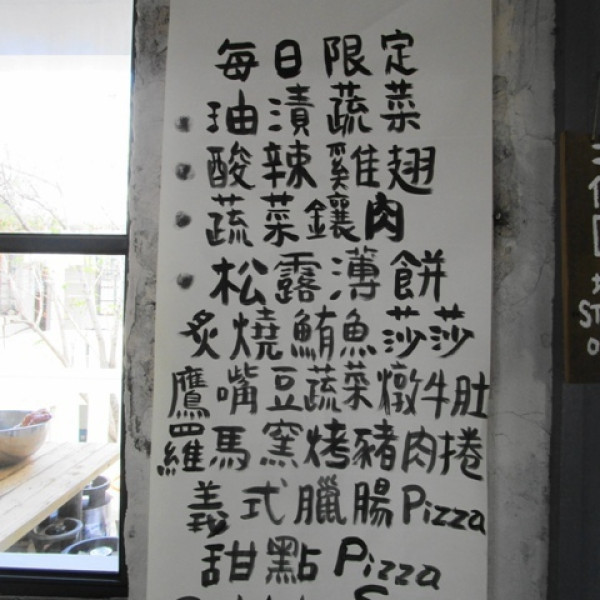 每日限定
• 油漬蔬菜
• 酸辣雞翅
• 蔬菜鑲肉
• 松露薄餅
炙燒鮪魚莎莎
鷹嘴豆蔬菜燉牛肚
羅馬窯烤豬肉捲
義式臘腸Pizza
甜點Pizza